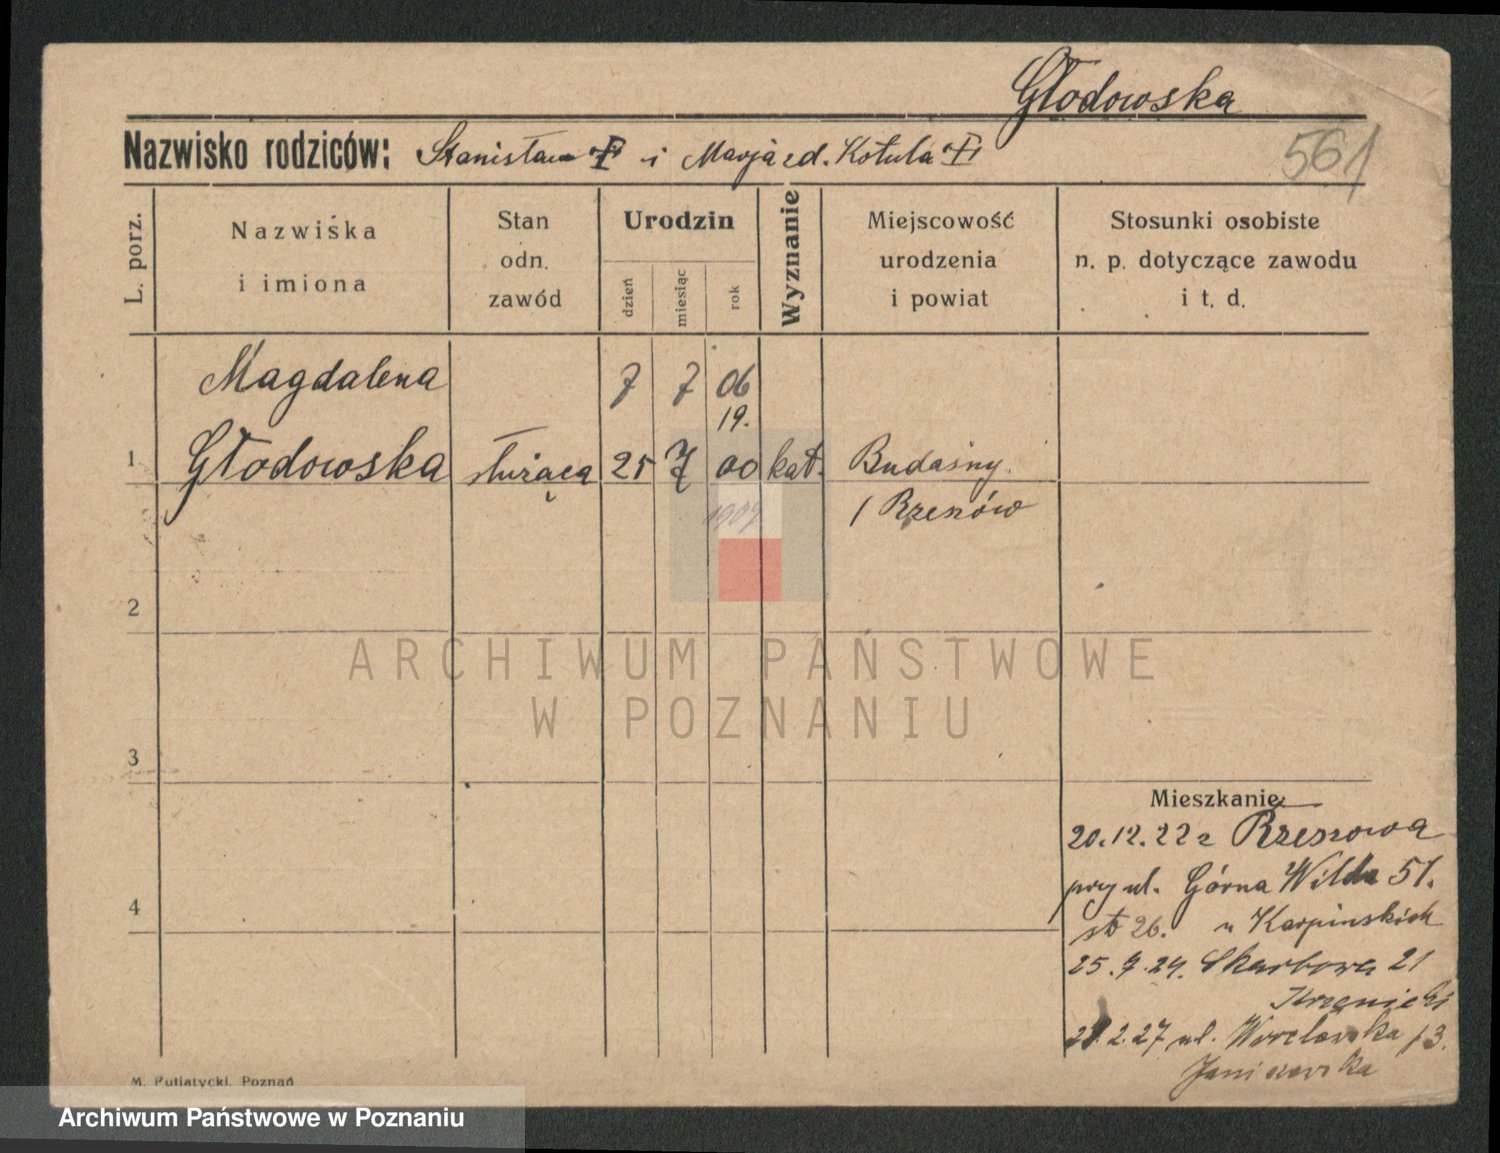 Głodowska
Nazwisko rodziców: Stanisław † i Marja zd. Kotula †
561
L. porz.
Nazwiska i imiona
Stan odn. zawód
Urodzin
dzień
miesiąc
rok
Wyznanie
Miejscowość urodzenia i powiat
Stosunki osobiste n. p. dotyczące zawodu i t. d.
Magdalena 7 7 06
19.
1 Głodowska służąca 25 7 00 kat. Budaśny.
1909 / Rzeszów
2
3
4
ARCHIWUM PAŃSTWOWE
W POZNANIU
Mieszkanie
20.12.22 z Rzeszowa
przy ul. Górna Wilda 51.
st 26. u Karpinskich
25.7.24. Skarbowa 21
2.27 ul. Wrocławska 13.
Janiszewska
M. Putiatycki, Poznań
Archiwum Państwowe w Poznaniu